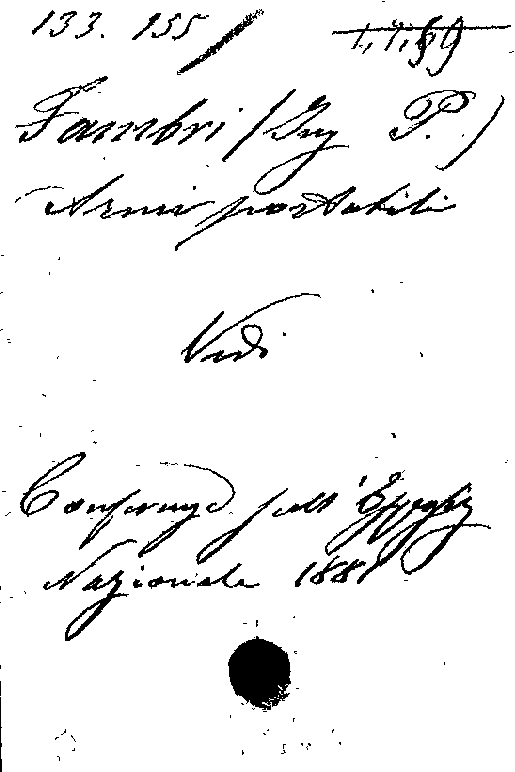 133. 155
Fambri (Ing P.)
Armi portatili
Vedi
Conferenze sull' Espoz
Nazionale 1881